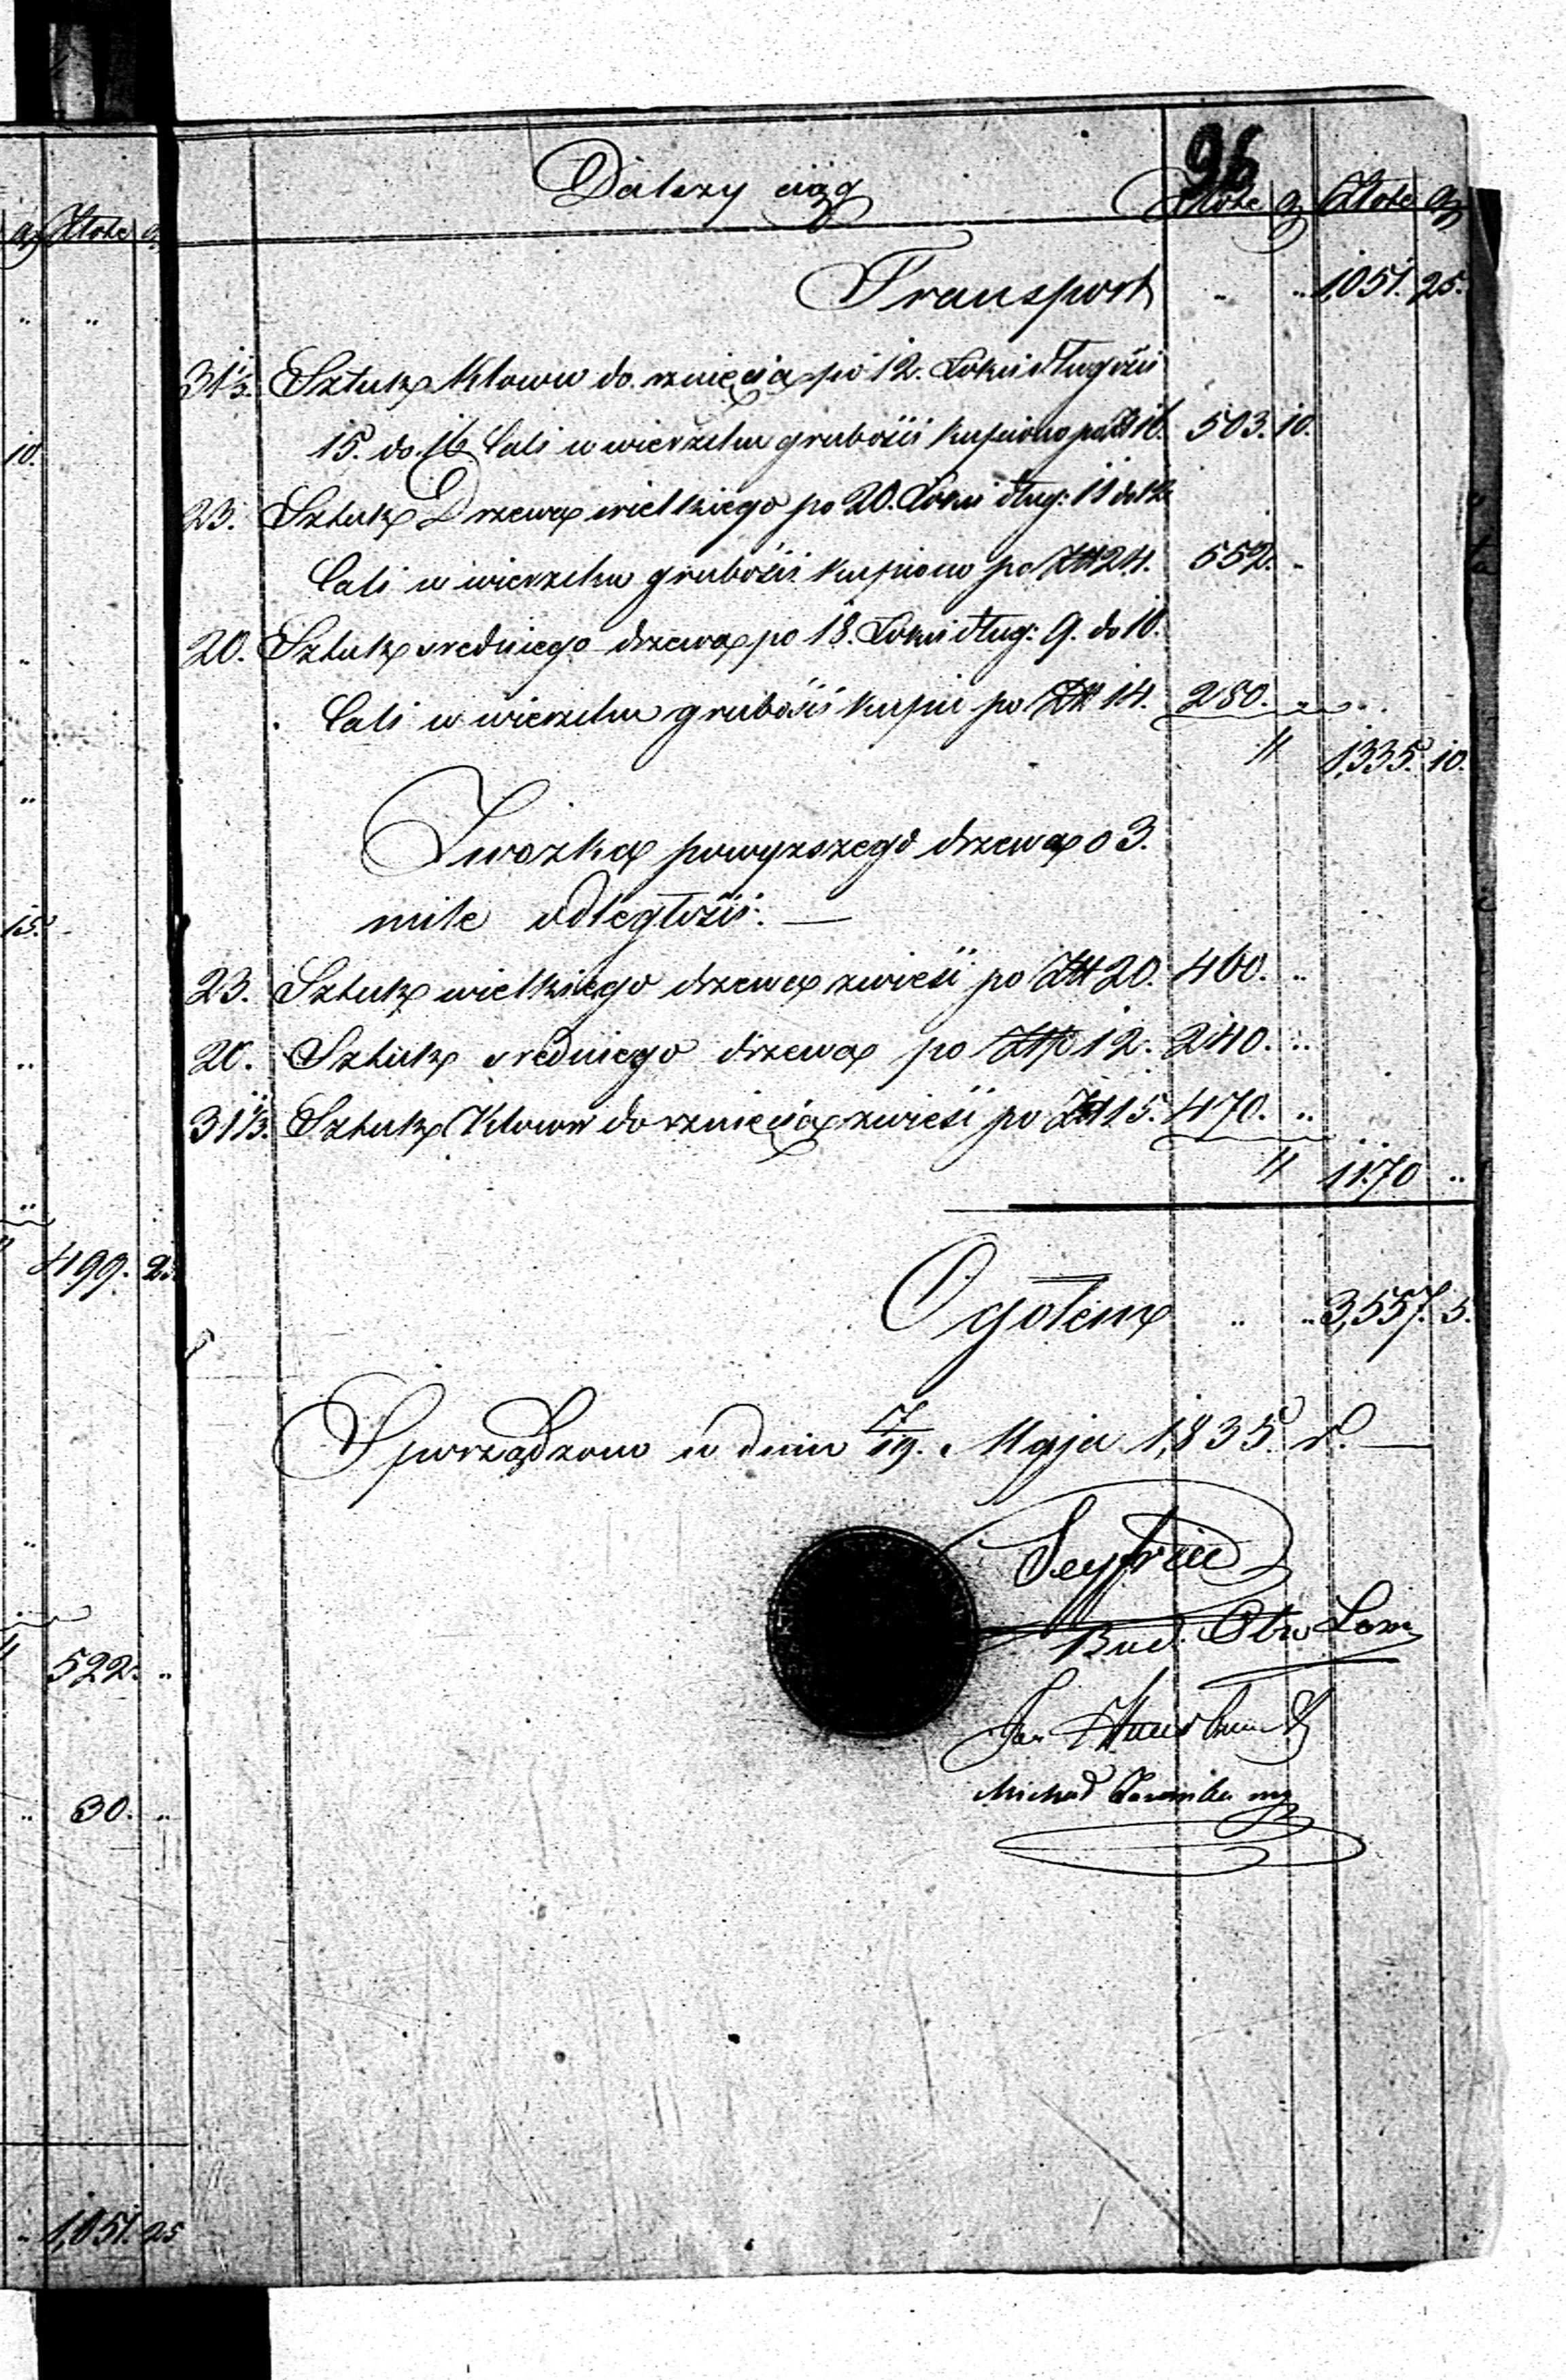 96
Dalszy ciąg
Złote g Złote gr
Transport " " 1,051. 25.
31⅓. Sztuk Klocow do rznięcia po 12. Łokci długości
15. do 16 Cali w wierzchu grubości kupiono po Zł 16. 503. 10.
23. Sztuk Drzewa wielkiego po 20. Łokci dług: 11 do 12
Cali w wierzchu grubości kupiono po Zł 24. 552. "
20. Sztuk sredniego drzewa po 18. Łokci dług: 9. do 10.
Cali w wierzchu grubości kupić po Zł 14. 280. "
" 1,335. 10.
Zwozka powyzszego drzewa o 3.
mile odległości: —
23. Sztuk wielkiego drzewa zwieść po Zł 20. 460. "
20. Sztuk sredniego drzewa po Złp 12. 240. "
31⅓. Sztuk Klocow do rznięcia zwieść po Zł 15. 470. "
" 1170 "
Ogołem " " 3,557. 5.
Sporządzono w dniu 7/19. Maja 1,835. r. —
Bud. Obw
Jan
Michał
gr Złote g
10.
15.
499. 25
522. "
" 30. "
" 1,051. 25